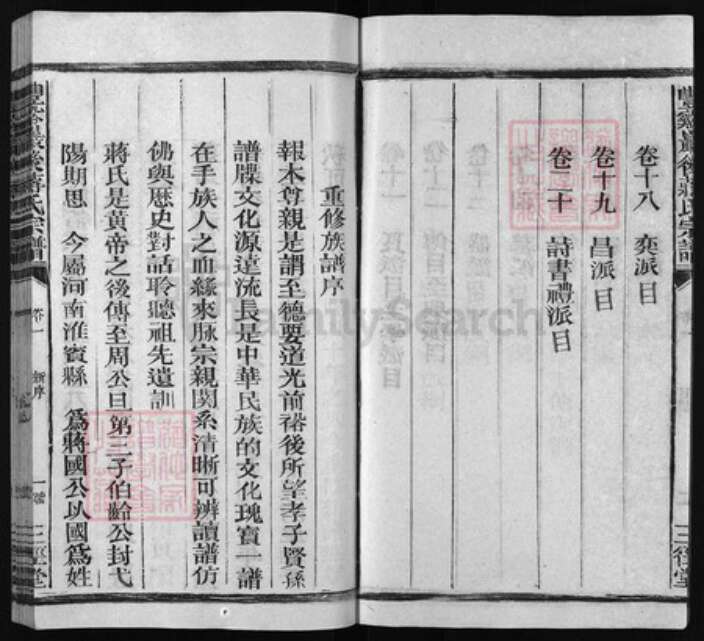 卷十八 奕派目
卷十九 昌派目
卷二十 詩書禮派目
三徑堂
重修族譜序
報本尊親是謂至德要道光前裕後所望孝子賢孫
譜牒文化源遠流長是中華民族的文化瑰寶一譜
在手族人之血緣來脉宗親関系清晰可辨讀譜仿
佛與歷史對話聆聽祖先遺訓
蔣氏是黃帝之後傳至周公旦第三子伯齡公封弋
陽期思 今屬河南淮賓縣 爲蔣國公以國爲姓
卷一 新序 一 三徑堂
FamilySearch